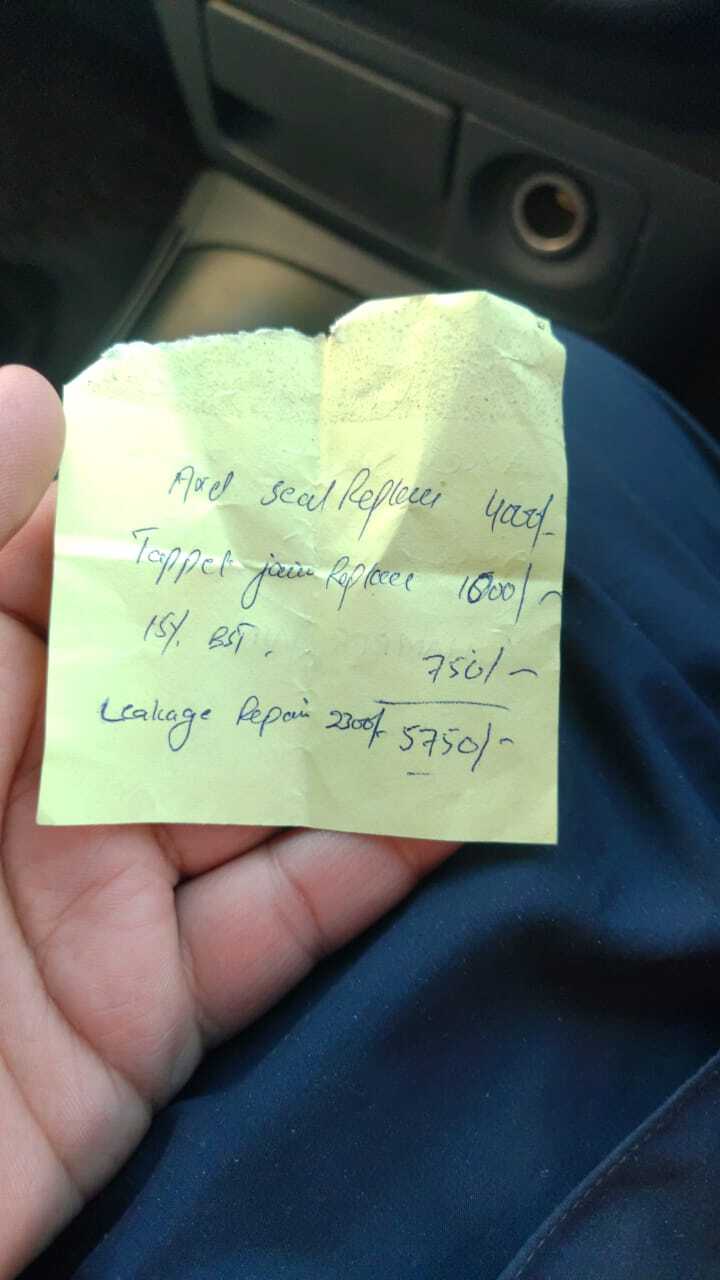 Axel seal Replace 4000/-
Tappet jain Replace 1000/-
15% BST. 750/-
Leakage Repair 2300/- 5750/-